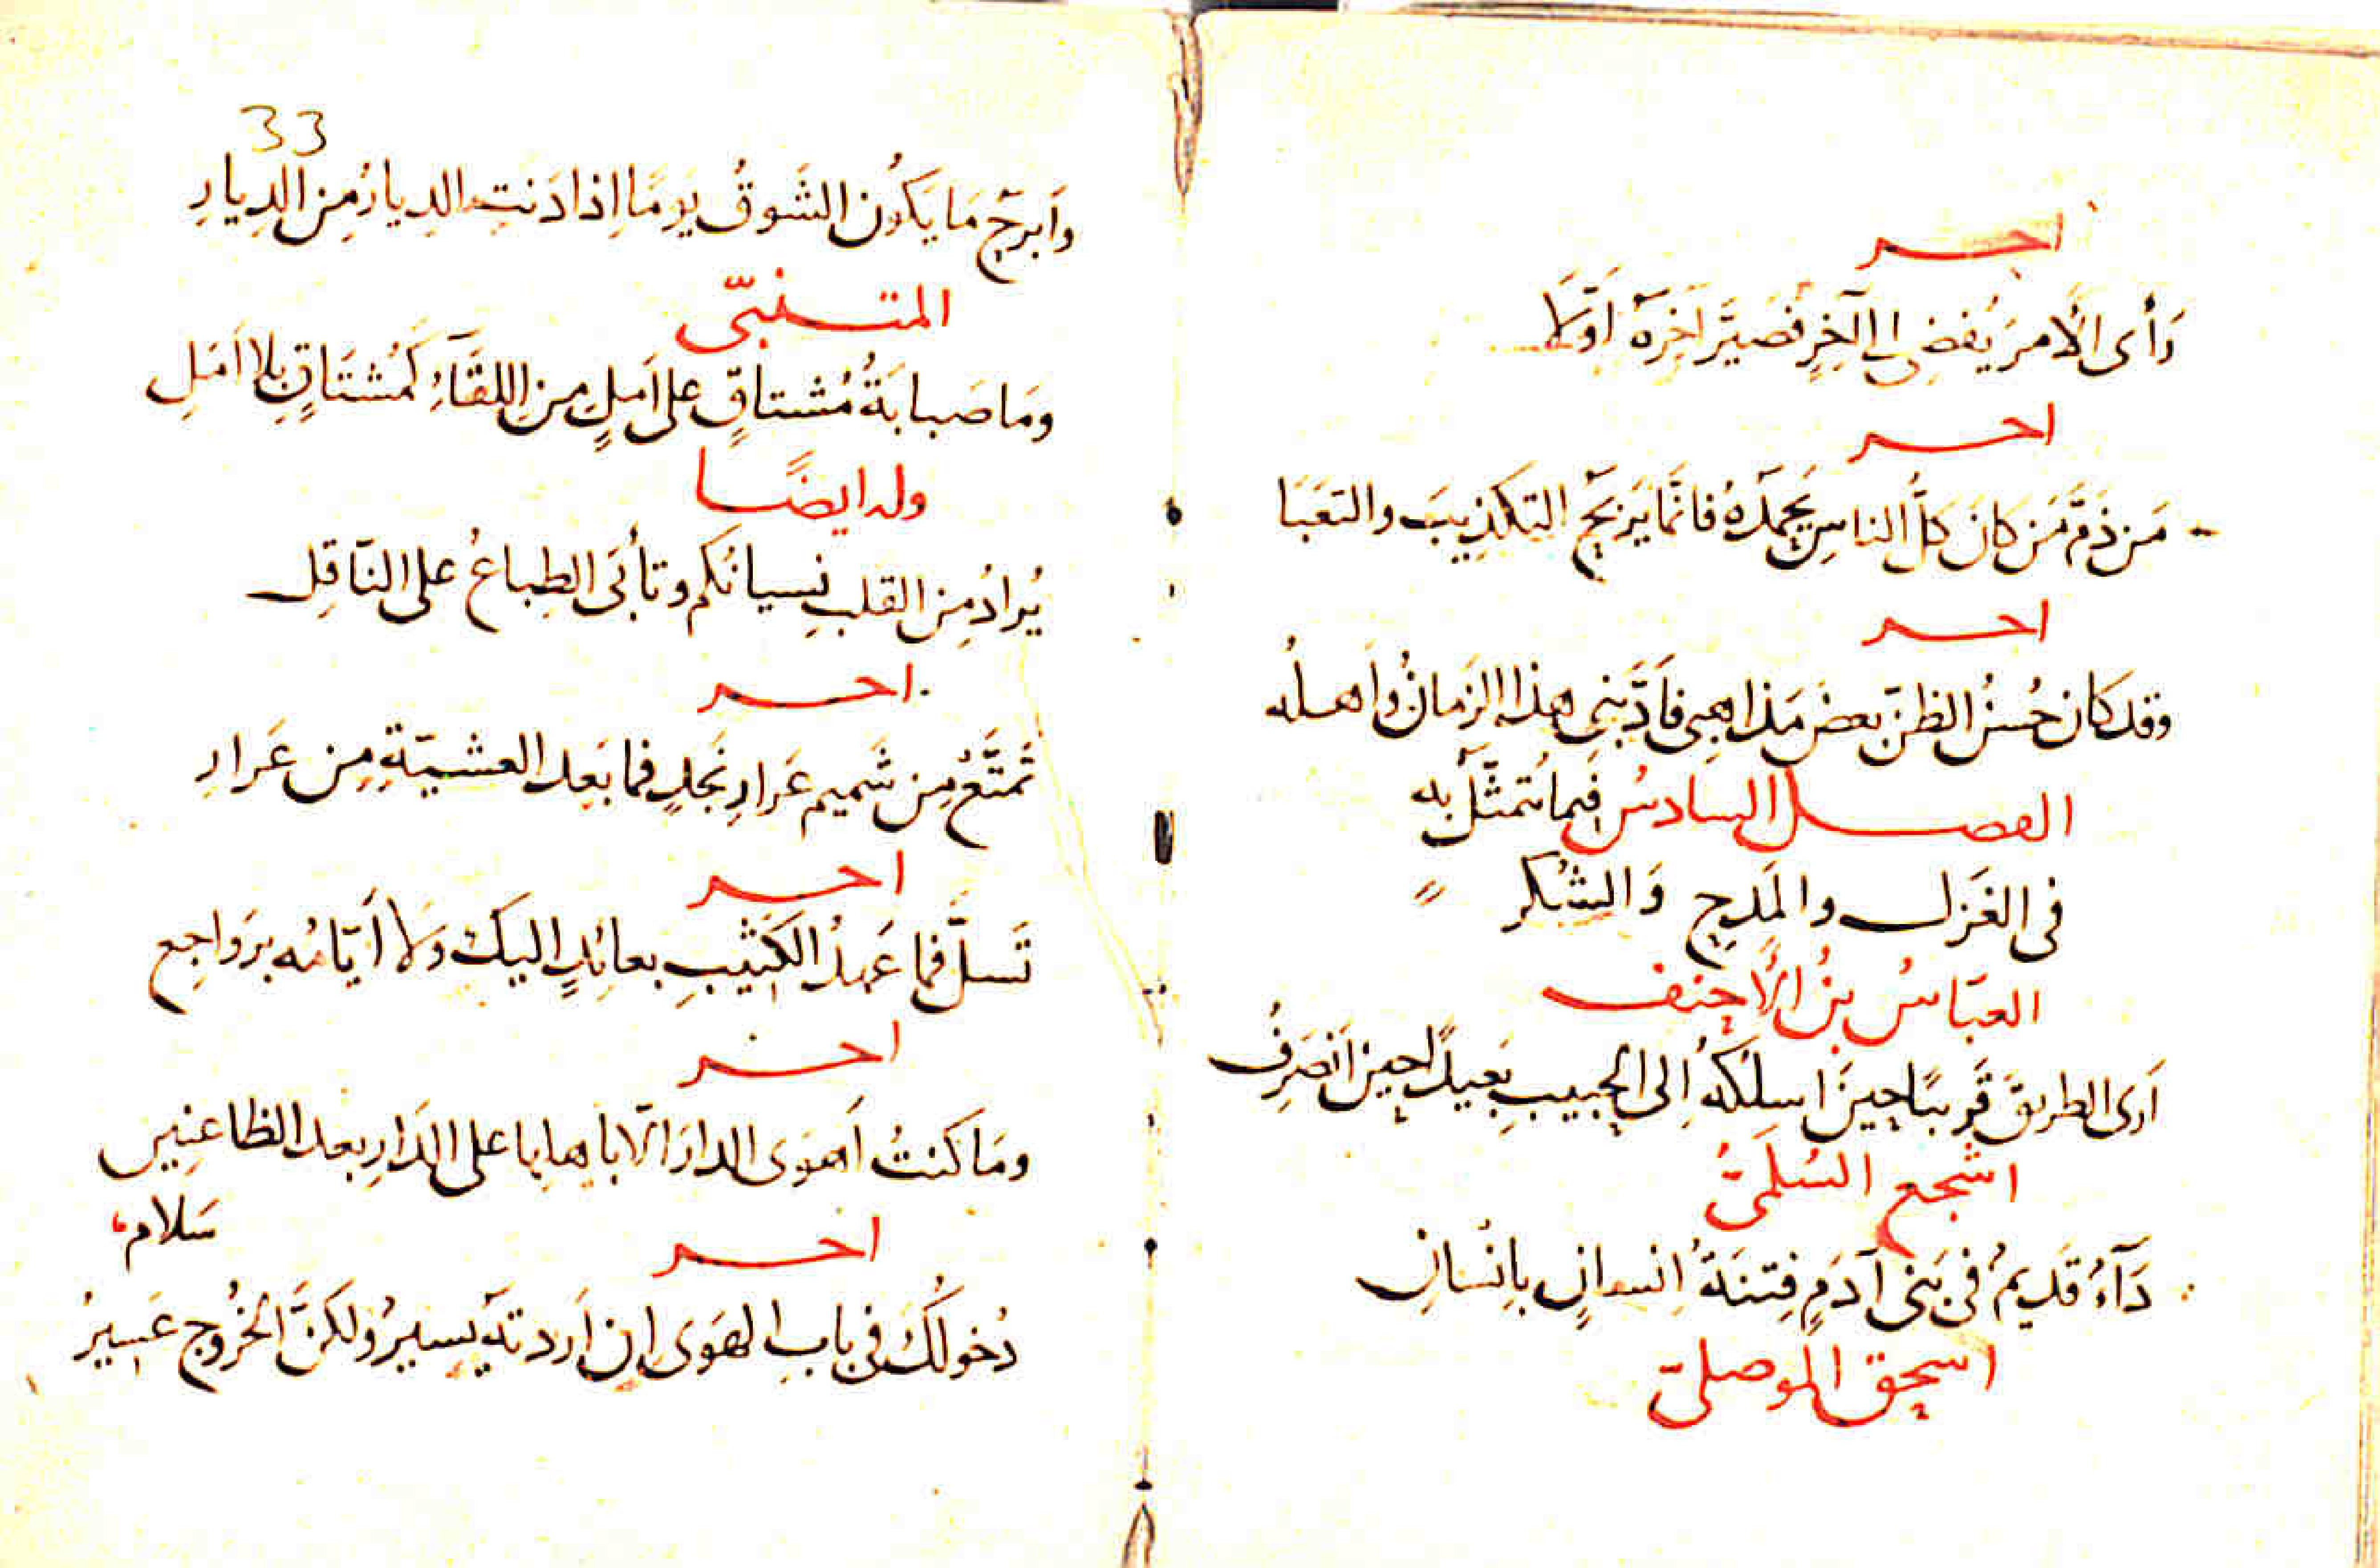 اخر
رَأى الأمرَ يُفضِى الى آخِرٍ فصَيَّرَ آخِرَهُ اَوَّلَا
اخر
مَن ذَمَّ مَن كانَ كلُّ الناسِ يَحمِدُهُ فانَّما يَربَحُ التكذِيبَ والتعَبَا
اخر
وقد كان حُسنُ الظنّ بعضَ مَذاهِبى فأدّبَنِى هذا الزمانُ واَهلُه
الفصل السادسُ فيما يُتمثّلُ به
فى الغَزل والمَدِيحِ وَالشُكر
العبّاسُ بنُ الأحنف
اَرى الطريقَ قَريبًا حينَ اَسلكُهُ اِلى الحَبيبِ بَعيدًا حين اَنصَرِفُ
اشجع السُلَمىُّ
دَآءٌ قَدِيمٌ فى بَنى آدَمٍ فِتنَةُ اِنسانٍ بِاِنسَانِ
اسحق الموصلىّ
33
وَاَبرَحُ مَا يَكُون الشَوقُ يَومًا اِذا دَنتِ الدِيارُ مِن الدِيارِ
المتنبّى
ومَا صَبابَةُ مُشتاقٍ على اَملٍ مِن اللقَآءِ كَمُشتَاقٍ بِلا اَمَلِ
وله ايضًا
يُرادُ مِن القلبِ نِسيانُكم وتأبَى الطِباعُ على النّاقِل
اخر
تمَتَّعْ مِن شَميم عَرارِ نَجدٍ فما بَعد العشيّةِ مِن عَرارِ
اخر
تَسلَّ فما عَهدُ الكَثيبِ بعائِدٍ اليكَ ولا أيّامُه برَواجِع
اخر
ومَا كنتُ اَهوَى الدارَ الّا باَهلِها على الدَارِ بعد الظاعِنِين
سَلام
اخر
دُخولُكَ فى بابِ الهوَى اِن اَردتَهُ يَسِيرٌ ولكنَّ الخُروج عَسِيرُ